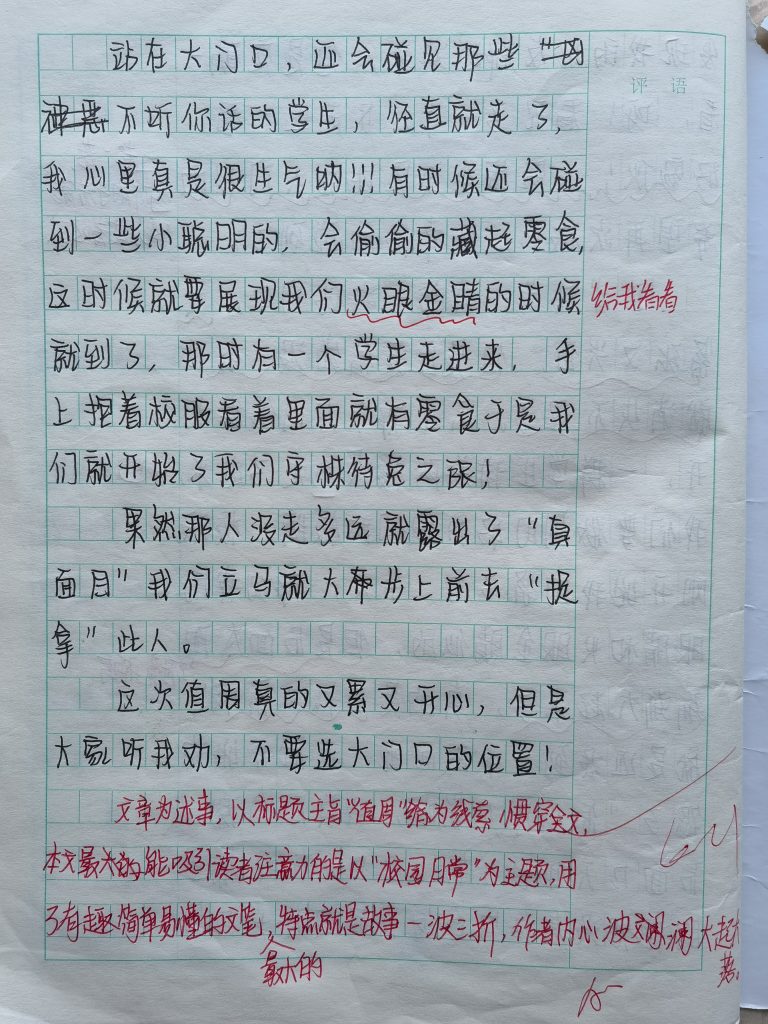 评 语
站在大门口，还会碰见那些“凶
神恶不听你话的学生，径直就走了，
我心里真是很生气呐!!!有时候还会碰
到一些小聪明的，会偷偷的藏起零食，
这时候就要展现我们火眼金睛的时候
给我看看
就到了，那时有一个学生走进来，手
上抱着校服看着里面就有零食于是我
们就开始了我们守株待兔之旅！
果然那人没走多远就露出了“真
面目”我们立马就大步上前去“捉
拿”此人。
这次值周真的又累又开心，但是
大家听我劝，不要选大门口的位置！
文章为述事，以标题主旨“值周”绾为线索，惯穿全文，
本文最大的能吸引读者注意力的是以“校园日常”为主题，用
了有趣简单易懂的文笔，特点就是故事一波三折，作者内心波澜大起大
落。
最大的